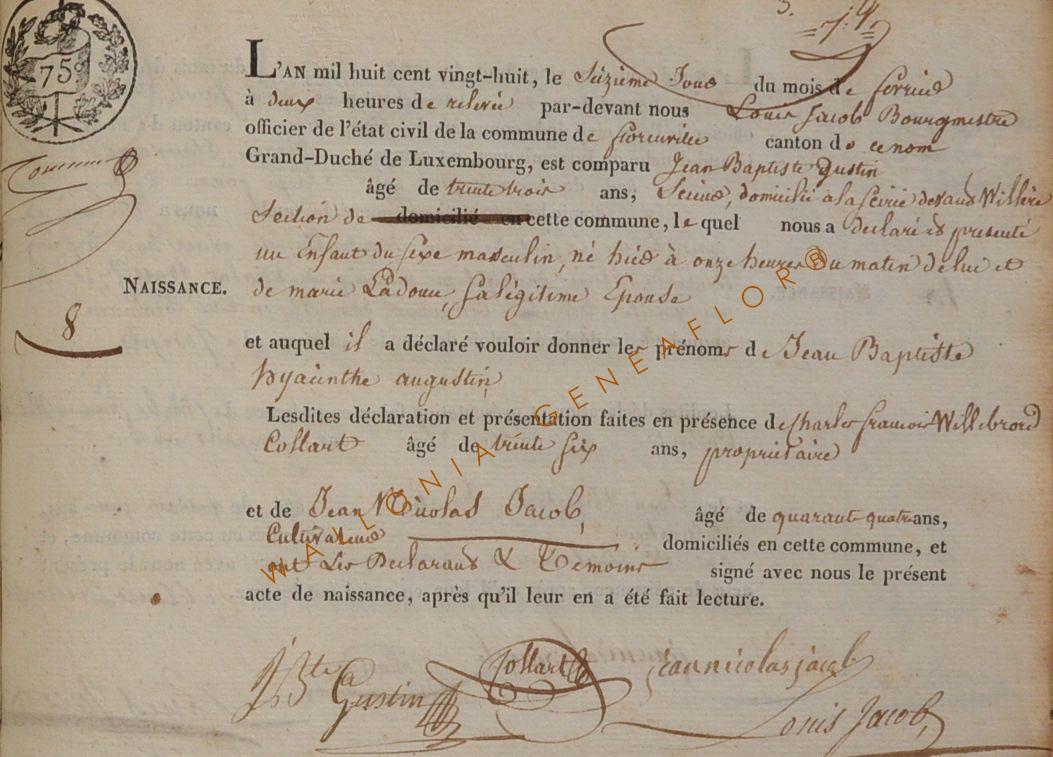 75c
L'AN mil huit cent vingt-huit, le Seizieme Jour du mois de fevrier
à deux heures de relevée par-devant nous Louis Jacob Bourgmestre
officier de l'état civil de la commune de florenville canton de ce nom
Grand-Duché de Luxembourg, est comparu Jean Baptiste Gustin
âgé de trente trois ans, domicilié a la
Section de domicilié en cette commune, le quel nous a declaré et presenté
un Enfant du sexe masculin, né hier à onze heures du matin de lui et
NAISSANCE. de marie Ladouce, sa légitime Epouse
8
et auquel il a déclaré vouloir donner les prénoms de Jean Baptiste
hyacinthe augustin,
Lesdites déclaration et présentation faites en présence de Charles francois Willibrord
Collart âgé de trente six ans, propriétaire
et de Jean Nicolas Jacob, âgé de quarant quatre ans,
Cultivateur domiciliés en cette commune, et
ont Les Declarant & Temoins signé avec nous le présent
acte de naissance, après qu'il leur en a été fait lecture.
JBte Gustin Collart jean nicolas jacob
Louis Jacob
WALLONIA GENEAFLOR®